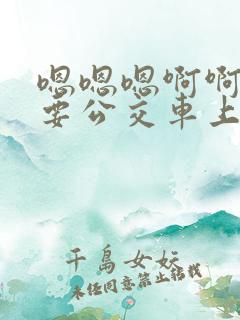 嗯嗯嗯啊啊
要公交車上
千島女妖
未经同意禁止转载